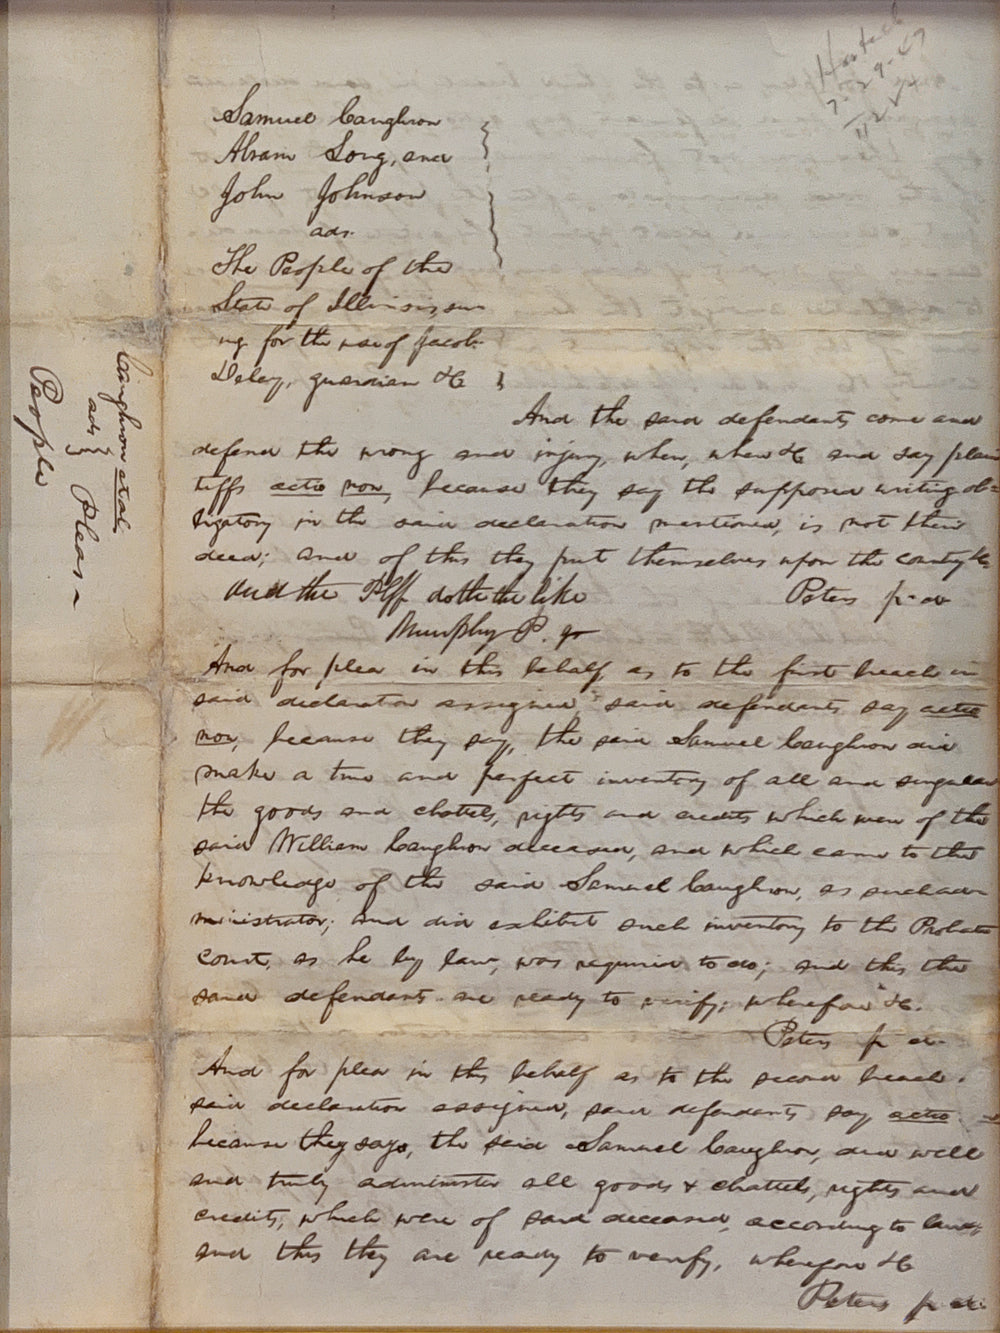 Samuel Caughron
Abram Long, and
John Johnson
ads.
The People of the
State of Illinois, su
ing for the use of Jacob
Deley, guardian &c
And the said defendants come and
defend the wrong and injury, when, when &c and say plain
tiffs actio non, because they say the supposed writing ob=
ligatory in the said declaration mentioned, is not their
deed; and of this they put themselves upon the country &c.
Peters p. d.
And the Plff doth the like
Murphy P. q.
And for plea in this behalf, as to the first breach in
said declaration assigned said defendants say actio
non, because they say, the said Samuel Caughron did
make a true and perfect inventory of all and singular
the goods and chattels, rights and credits which were of the
said William Caughron deceased, and which came to the
knowledge of the said Samuel Caughron, as such ad
ministrator; and did exhibit such inventory to the Probate
court, as he by law, was required to do; and this the
said defendants are ready to verify; wherefore &c.
Peters p. d.
And for plea in this behalf as to the second breach
said declaration assigned, said defendants say actio
because they say, the said Samuel Caughron, did well
and truly administer all goods & chattels, rights and
credits, which were of said deceased, according to law;
and this they are ready to verify, wherefore &c
Peters p. d.
Caughron et al.
ads
People
Pleas